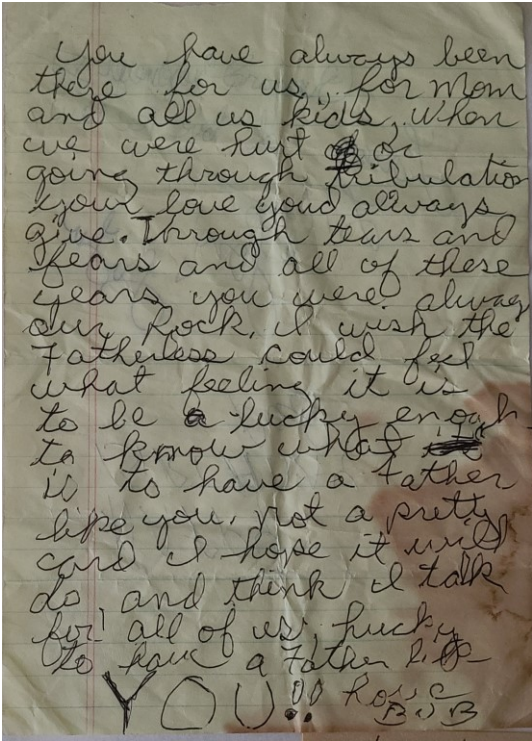 You have always been
there for us, for Mom
and all us kids, when
we were hurt or
going through tribulation
your love youd always
give. Through tears and
fears and all of these
years you were always
our Rock, I wish the
Fatherless could feel
what feeling it is
to be a lucky enough
to know what
is to have a Father
like you, not a pretty
card I hope it will
do, and think I talk
for all of us, Lucky
to have a Father like
YOU!!
BOB